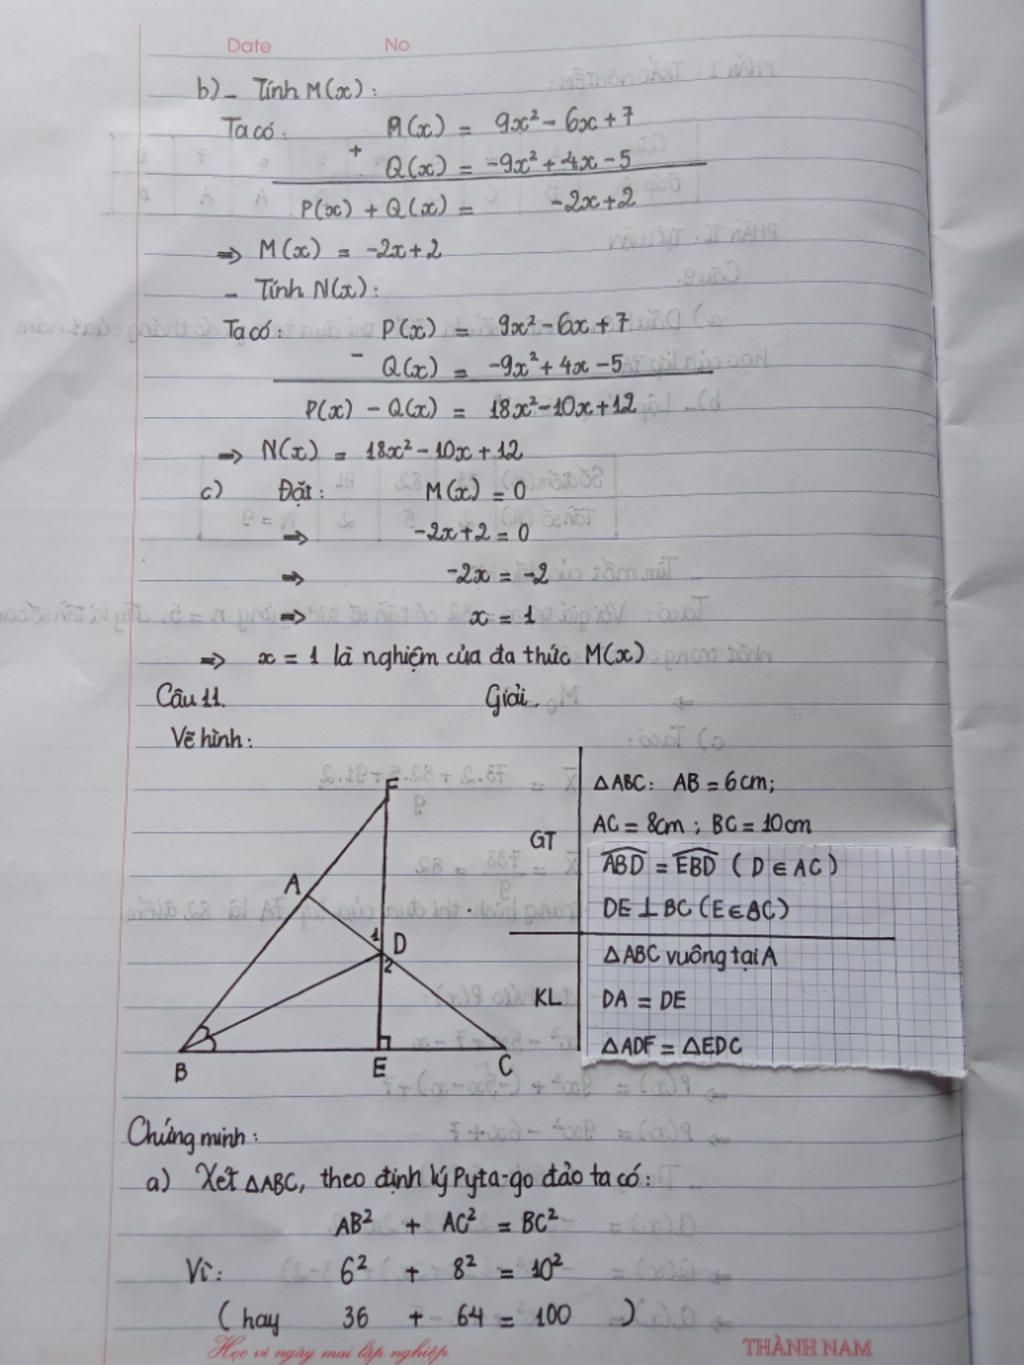 Date No
b) - Tính M(x):
Ta có: P(x) = 9x² - 6x + 7
+
Q(x) = -9x² + 4x - 5
P(x) + Q(x) = -2x + 2
=> M(x) = -2x + 2
- Tính N(x):
Ta có: P(x) = 9x² - 6x + 7
-
Q(x) = -9x² + 4x - 5
P(x) - Q(x) = 18x² - 10x + 12
=> N(x) = 18x² - 10x + 12
c) Đặt: M(x) = 0
=> -2x + 2 = 0
=> -2x = -2
=> x = 1
=> x = 1 là nghiệm của đa thức M(x)
Câu 11. Giải.
Vẽ hình:
F
A
1
D
2
B
E
C
GT
△ABC: AB = 6cm;
AC = 8cm; BC = 10cm
ABD = EBD (D ∈ AC)
DE ⊥ BC (E ∈ BC)
KL
△ABC vuông tại A
DA = DE
△ADF = △EDC
Chứng minh:
a) Xét △ABC, theo định lý Pyta-go đảo ta có:
AB² + AC² = BC²
Vì: 6² + 8² = 10²
(hay 36 + 64 = 100)
Học vì ngày mai lập nghiệp THÀNH NAM